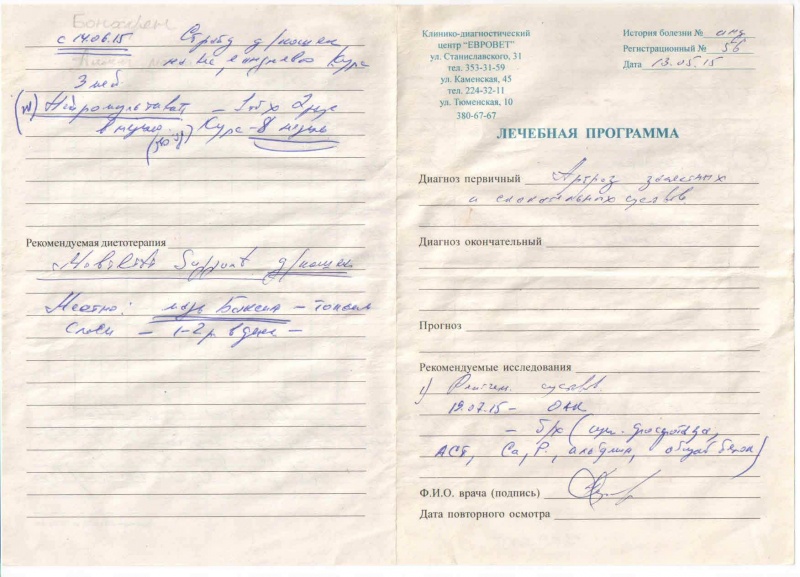 Бонхарен
с 14.06.15 Страйд д/кошек
курс
3 нед
- 1 таб х 2 раза
в курс - 8 недель
Рекомендуемая диетотерапия
Mobility Support д/кошек
Местно: мазь - тонким
слоем - 1-2 р в день -
Клинико-диагностический
центр "ЕВРОВЕТ"
ул. Станиславского, 31
тел. 353-31-59
ул. Каменская, 45
тел. 224-32-11
ул. Тюменская, 10
380-67-67
История болезни №
Регистрационный № 56
Дата 13.05.15
ЛЕЧЕБНАЯ ПРОГРАММА
Диагноз первичный Артроз запястных
и скакательных суставов
Диагноз окончательный
Прогноз
Рекомендуемые исследования
1) Рентген. суставов
19.07.15 - ОАК
- б/х (щел. фосфатаза,
АСТ, Ca, P, альбумин, общий белок)
Ф.И.О. врача (подпись)
Дата повторного осмотра